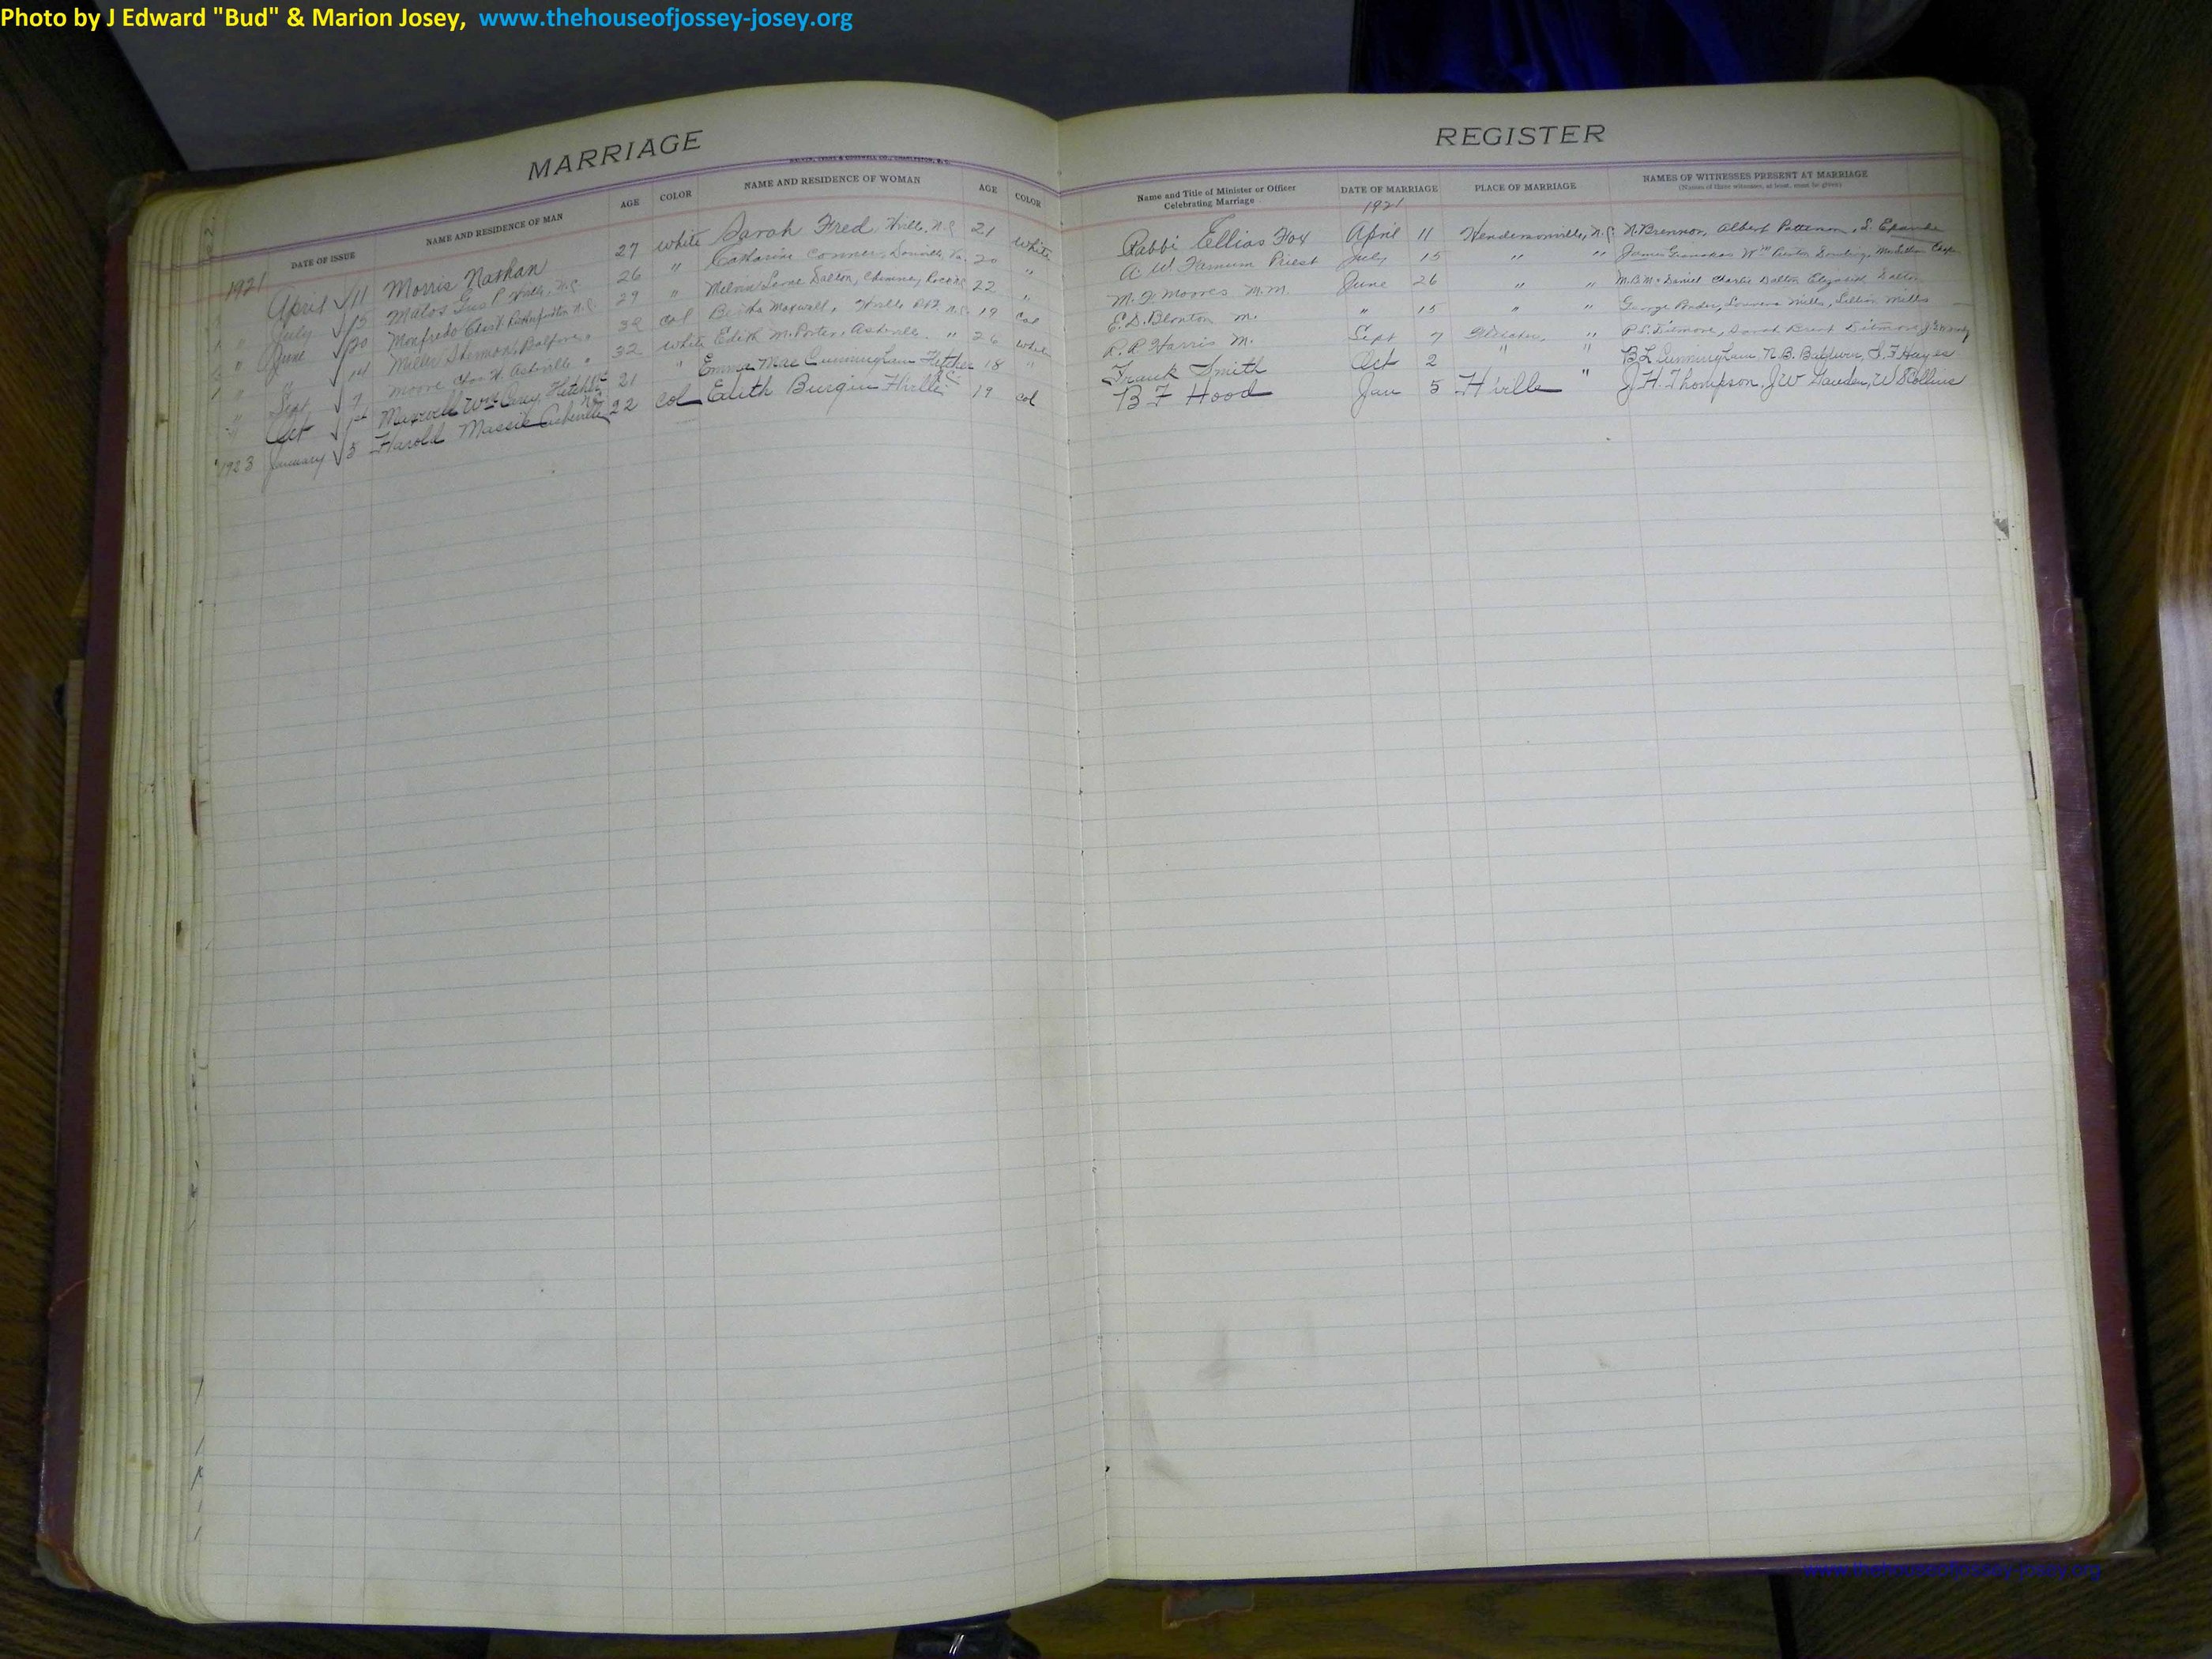 Photo by J Edward "Bud" & Marion Josey, www.thehouseofjossey-josey.org
MARRIAGE
WALKER, EVANS & COGSWELL CO., CHARLESTON, S. C.
DATE OF ISSUE NAME AND RESIDENCE OF MAN AGE COLOR NAME AND RESIDENCE OF WOMAN AGE COLOR
1921 April 11 Morris Nathan 27 white Sarah Fred, Hville, N.C. 21 White
" July 15 Matos Gus P Hville, N.C. 26 " Catharine Conner, 20 "
" June 20 Monfredo Chas T N.C. 29 " Dalton, Chimney Rock N.C. 22 "
" " 14 Miller Shermon, Balfour " 38 Col Bertha Maxwell, Hville N.C. 19 Col
" Sept 7 Moore Chas H. Asheville " 32 white Edith M. Porter, Asheville " 26 White
" Oct 1st Maxwell Wm Carey Fletcher NC 21 " Emma Mae Cunningham Fletcher NC 18 "
1923 January 3 Harold Massie Asheville 22 Col Edith Burgin Hville 19 Col
REGISTER
Name and Title of Minister or Officer Celebrating Marriage DATE OF MARRIAGE PLACE OF MARRIAGE NAMES OF WITNESSES PRESENT AT MARRIAGE
(Names of three witnesses, at least, must be given)
1921
Rabbi Ellias Fox April 11 Hendersonville, N.C. N. Brennor, Albert Patterson, S.
A. W. Farnum Priest July 15 " " James
M. F. Moores M.M. June 26 " " M.B. McDaniel Charlie Dalton Elizabeth Dalton
E. D. Blonton M. " 15 " " George Ponder, Louvena Mills, Lillian Mills
R. P. Harris M. Sept 7 " P.S. Sarah
Frank Smith Oct 2 " " B L Cunningham N. B. Baldwin, S. F. Hayes
B F Hood Jan 5 H'ville " J. H. Thompson, J W W S Collins
www.thehouseofjossey-josey.org